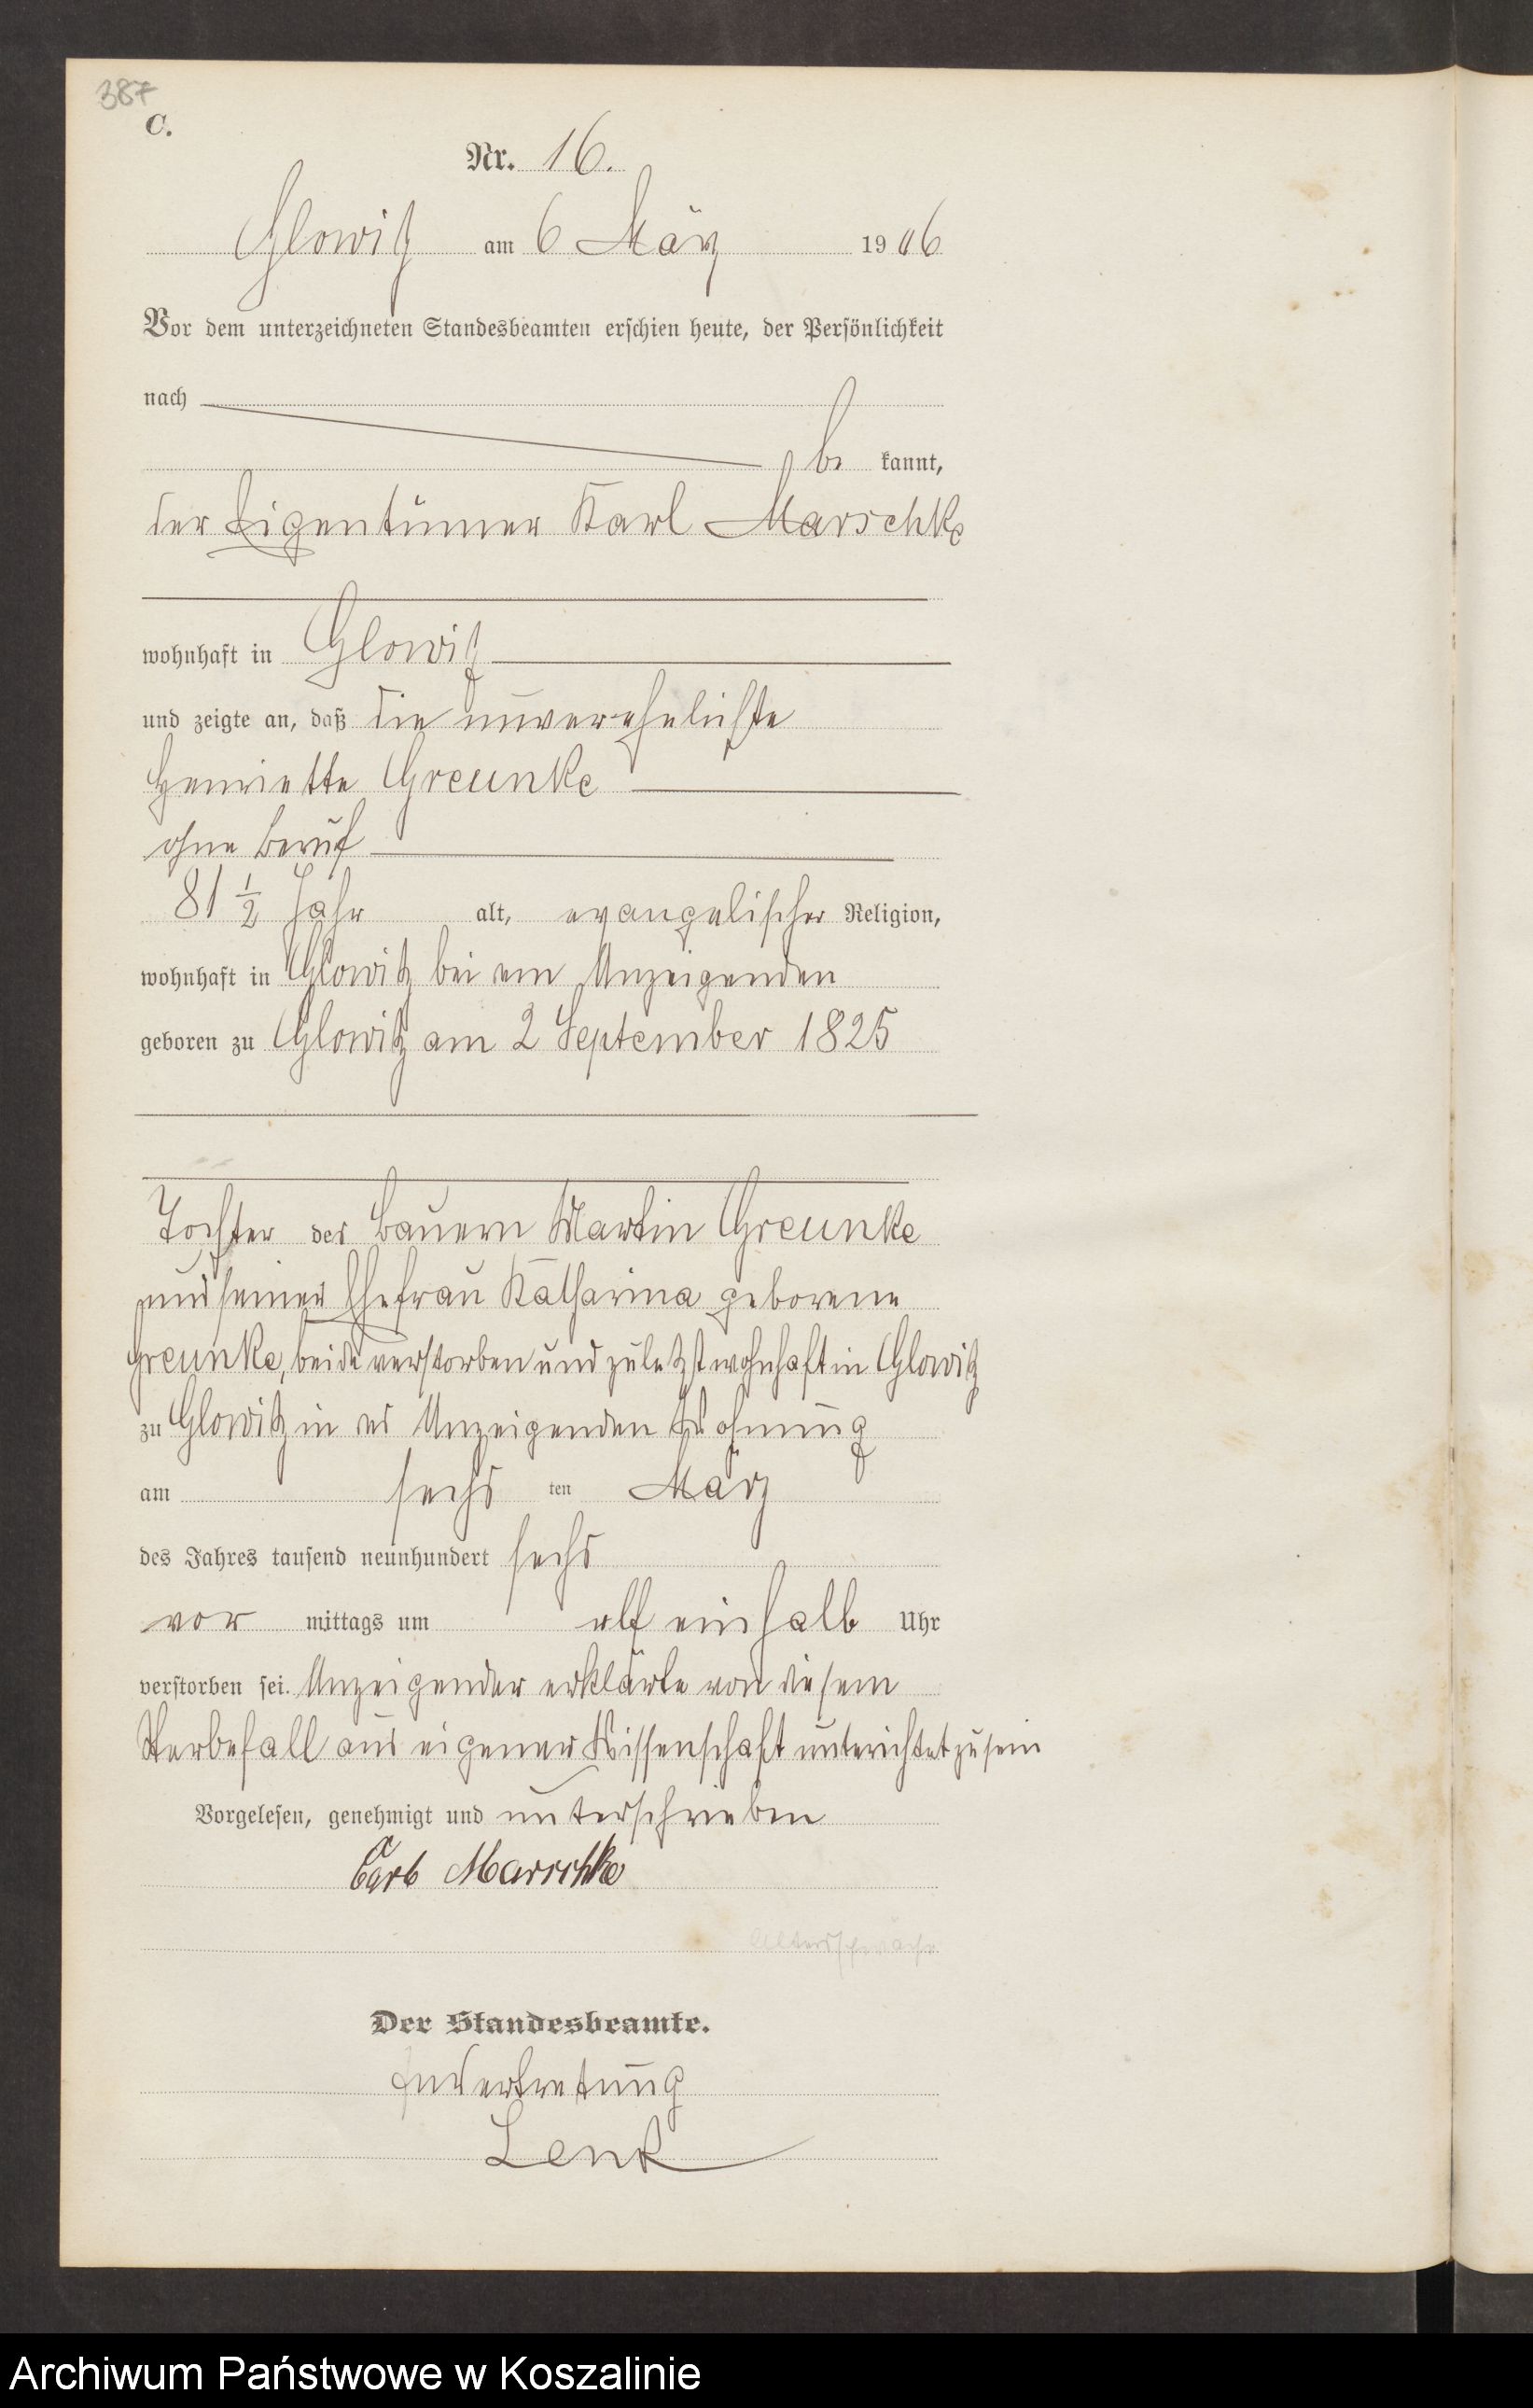 387
C.
Nr. 16.
Glowitz am 6 März 1906
Vor dem unterzeichneten Standesbeamten erschien heute, der Persönlichkeit
nach
be kannt,
der Eigentümer Karl Marschke
wohnhaft in Glowitz
und zeigte an, daß die unverehelichte
Henriette Greunke
ohne Beruf
81 1/2 Jahr alt, evangelischer Religion,
wohnhaft in Glowitz bei em Anzeigenden
geboren zu Glowitz am 2 September 1825
Tochter des Bauern Martin Greunke
und seiner Ehefrau Katharina geborene
Greunke, beide verstorben und zuletzst wohnhaft in Glowitz
zu Glowitz in es Anzeigenden Wohnung
am sechs ten März
des Jahres tausend neunhundert sechs
vor mittags um elf einhalb Uhr
verstorben sei. Anzeigender erklärte von diesem
Sterbefall aus eigener Wissenschaft unterichtet zu sein
Vorgelesen, genehmigt und unterschrieben
Carl Marschke
Altersschwäche
Der Standesbeamte.
In Vertretung
Lenk
Archiwum Państwowe w Koszalinie